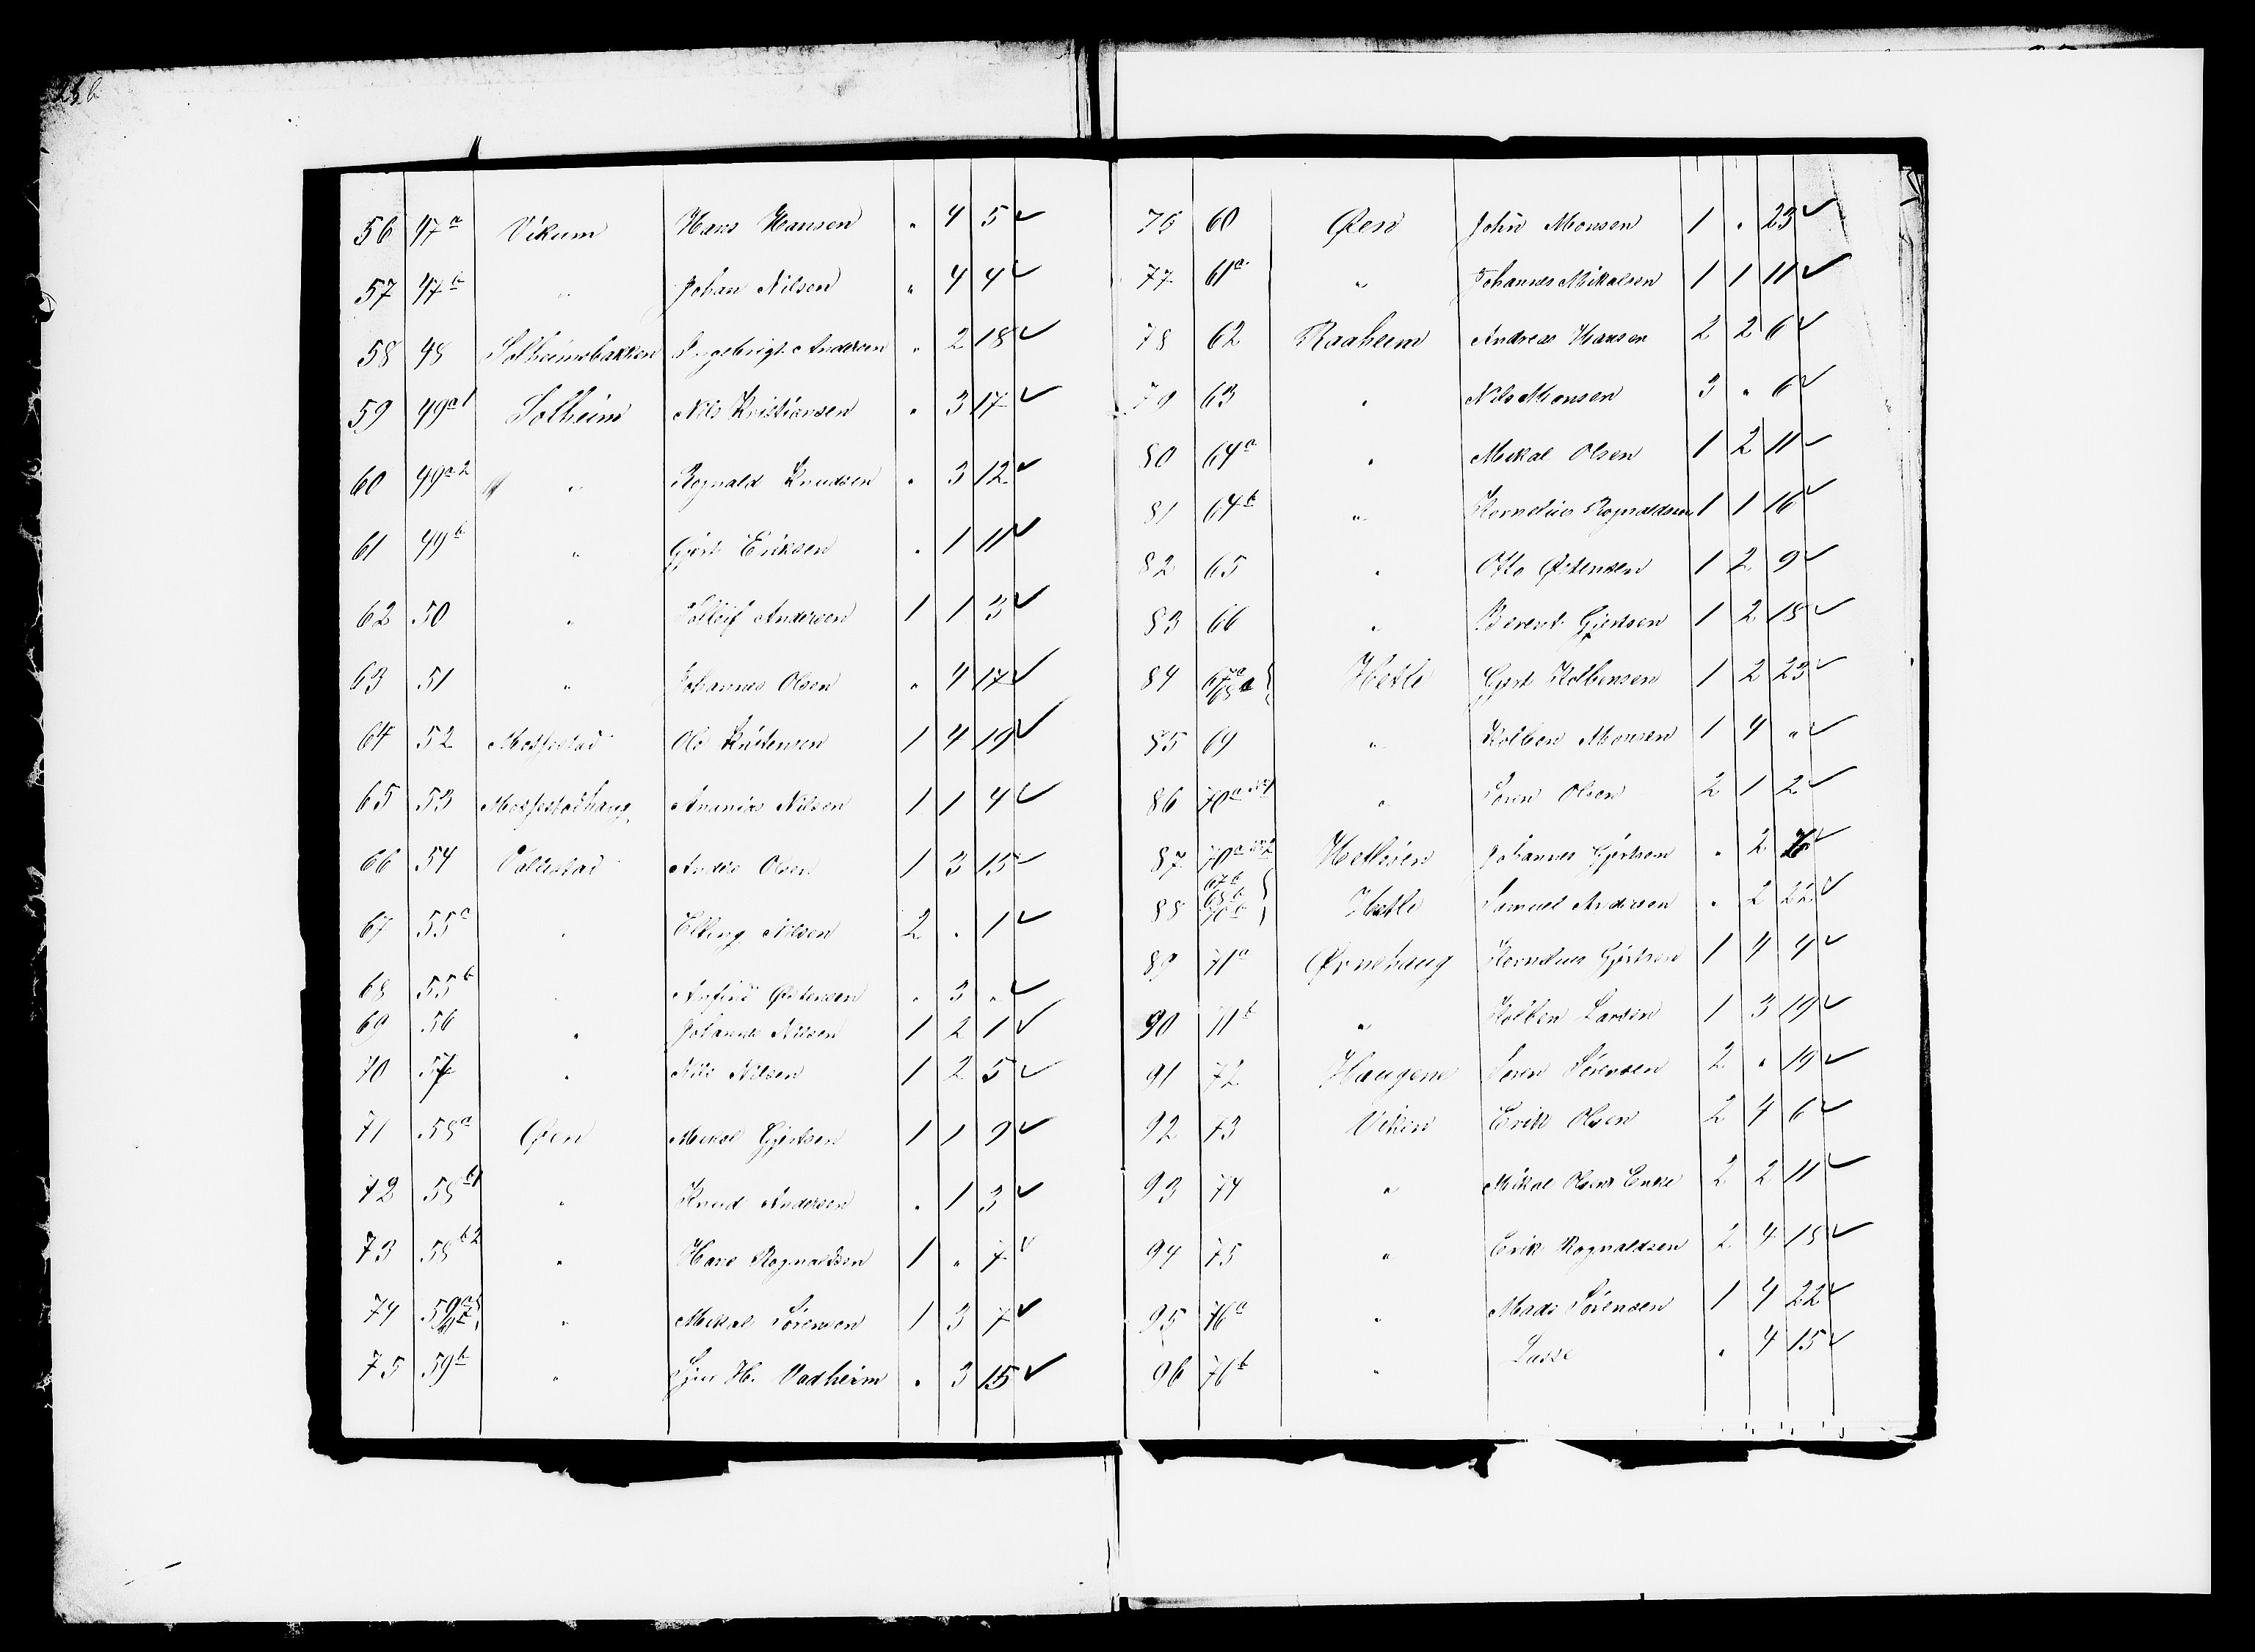 56 47a Vikum Hans Hansen " 4 5 ✓
57 47b " Johan Nilsen " 4 4 ✓
58 48 Solheimsbakken Ingebrigt Andersen " 2 18 ✓
59 49a1 Solheim Nils Kristiansen " 3 17 ✓
60 49a2 " Rognald Knudsen " 3 12 ✓
61 49b " Gjert Eriksen " 1 11 ✓
62 50 " Andersen 1 1 3 ✓
63 51 " Johannes Olsen " 4 17 ✓
64 52 Mossestad Ole Kristensen 1 4 19 ✓
65 53 Mossestadhaug Ananias Nilsen 1 1 4 ✓
66 54 Vallestad Anders Olsen 1 3 15 ✓
67 55a " Elling Nilsen 2 " 1 ✓
68 55b " Anfind Østensen " 3 " ✓
69 56 " Johannes Nilsen 1 2 1 ✓
70 57 " Nils Nilsen 1 2 5 ✓
71 58a Øen Mikal Gjertsen 1 1 9 ✓
72 58b1 " Knud Andersen " 1 3 ✓
73 58b2 " Hans Rognaldsen 1 " 7 ✓
74 59a " Mikal Sørensen 1 3 7 ✓
75 59b " H. Vadheim " 3 15 ✓
76 60 Øen John Monsen 1 " 23 ✓
77 61a " Johannes Mikalsen 1 1 11 ✓
78 62 Raaheim Andreas Hansen 2 2 6 ✓
79 63 " Nils Monsen 3 " 6 ✓
80 64a " Mikal Olsen 1 2 11 ✓
81 64b " Kornelius Rognaldsen 1 1 16 ✓
82 65 " Otto Østensen 1 2 9 ✓
83 66 " Berent Gjertsen 1 2 18 ✓
84 67a 68a } Hetle Gjert Kolbensen 1 2 23 ✓
85 69 " Kolben Monsen 1 4 " ✓
86 70a 1 " Søren Olsen 2 1 2 ✓
87 70a 2 Hellesen Johannes Gjertsen " 2 ✓
88 67b 68b 70b } Hetle Samuel Andersen " 2 22 ✓
89 71a Ørnehaug Kornelius Gjertsen 1 4 4 ✓
90 71b " Kolben Larsen 1 3 19 ✓
91 72 Haugene Søren Sørensen 2 " 19 ✓
92 73 Viken Erik Olsen 2 4 6 ✓
93 74 " Mikal Olsens Enke 2 2 11 ✓
94 75 " Erik Rognaldsen 2 4 18 ✓
95 76a " Mads Sørensen 1 4 22 ✓
96 76b " Lasse " 4 15 ✓